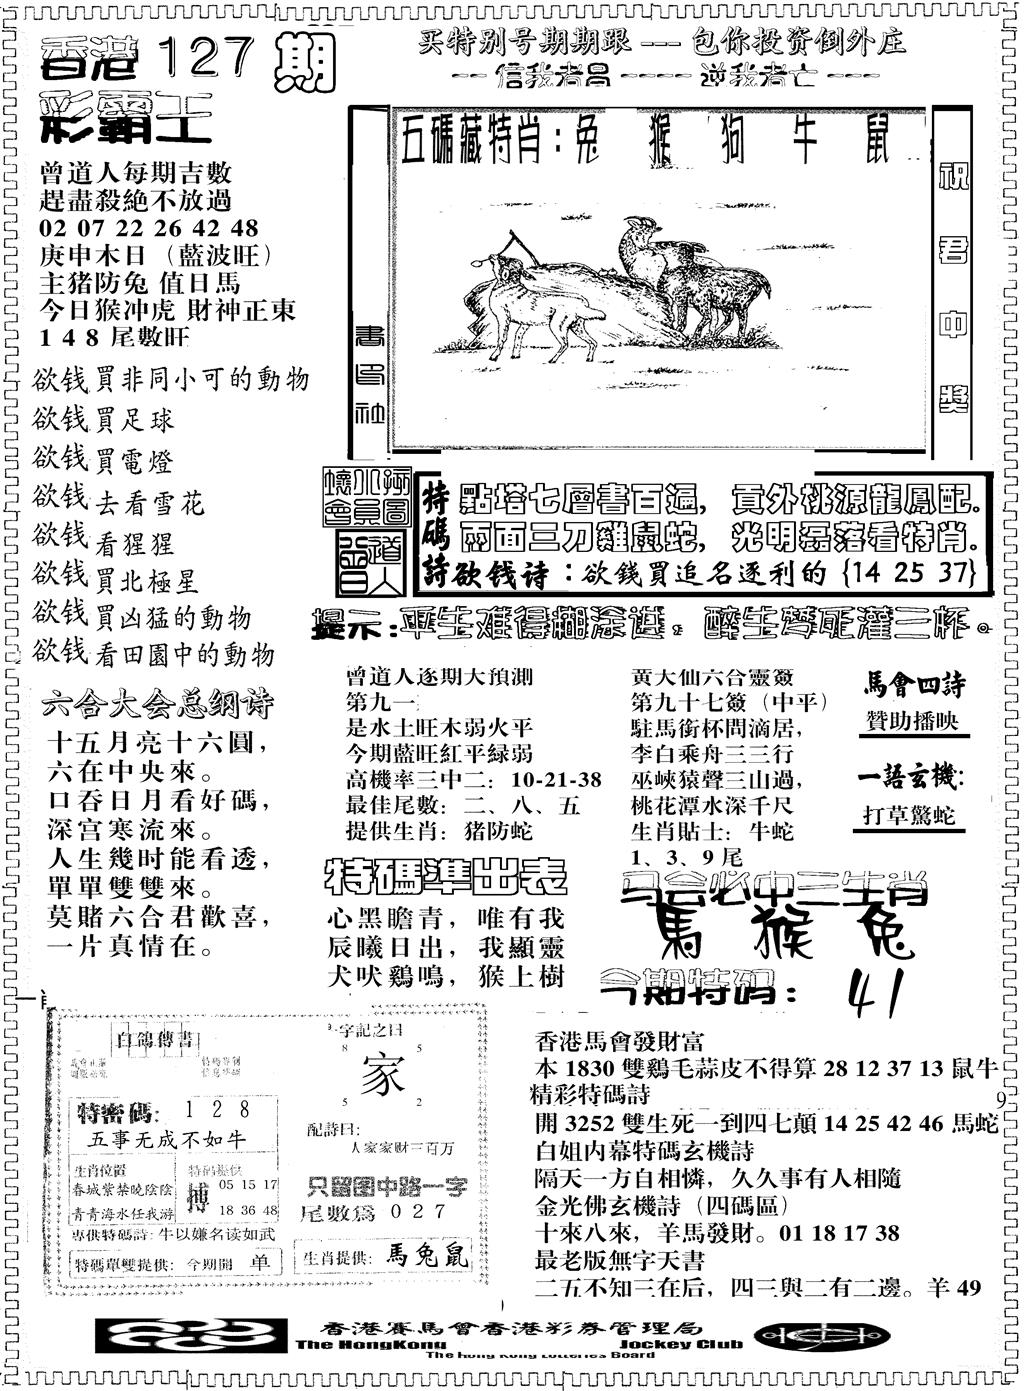 香港 127 期
彩霸王
买特别号期期跟 --- 包你投资倒外庄
-- 信我者昌 ---- 逆我者亡 ---
曾道人每期吉數
趕盡殺絶不放過
02 07 22 26 42 48
庚申木日（藍波旺）
主猪防兔 值日馬
今日猴冲虎 財神正東
1 4 8 尾數旺
欲钱買非同小可的動物
欲钱買足球
欲钱買電燈
欲钱去看雪花
欲钱看猩猩
欲钱買北極星
欲钱買凶猛的動物
欲钱看田園中的動物
六合大会总纲诗
十五月亮十六圓，
六在中央來。
口吞日月看好碼，
深宫寒流來。
人生幾时能看透，
單單雙雙來。
莫賭六合君歡喜，
一片真情在。
五碼藏特肖：兔 猴 狗 牛 鼠
祝君中獎
曾道人
特碼詩
點塔七層書百遍，貢外桃源龍鳳配.
兩面三刀雞鼠蛇，光明磊落看特肖.
欲钱诗：欲錢買追名逐利的 {14 25 37}
提示：平生难得糊涂进，醉生梦死灌三杯。
曾道人逐期大預測
第九一
是水土旺木弱火平
今期藍旺紅平緑弱
高機率三中二：10-21-38
最佳尾數：二、八、五
提供生肖：猪防蛇
黄大仙六合靈簽
第九十七簽（中平）
駐馬銜杯問滴居，
李白乘舟三三行
巫峽猿聲三山過，
桃花潭水深千尺
生肖貼士：牛蛇
1、3、9 尾
馬會四詩
贊助播映
一語玄機：
打草驚蛇
特碼準出表
心黑瞻青，唯有我
辰曦日出，我顯靈
犬吠鷄鳴，猴上樹
马会必中三生肖
馬 猴 兔
今期特码：41
白鴿傳書
特密碼：1 2 8
五事无成不如牛
生肖位置
春城紫禁晓陰陰
青青海水任我游
特码提供
搏
05 15 17
18 36 48
專供特碼詩：牛以嫌名读如武
特碼單雙提供：今期開 单
一字記之曰
8 5
家
5 2
配詩曰：
人家家财三百万
只留图中路一字
尾數爲 0 2 7
生肖提供：馬兔鼠
香港馬會發財富
本 1830 雙鷄毛蒜皮不得算 28 12 37 13 鼠牛
精彩特碼詩
開 3252 雙生死一到四七顛 14 25 42 46 馬蛇
白姐内幕特碼玄機詩
隔天一方自相憐，久久事有人相隨
金光佛玄機詩（四碼區）
十來八來，羊馬發財。01 18 17 38
最老版無字天書
二五不知三在后，四三與二有二邊。羊 49
9
香港賽馬會香港彩券管理局
The HongKong Jockey Club
The Hong Kong Lotteries Board